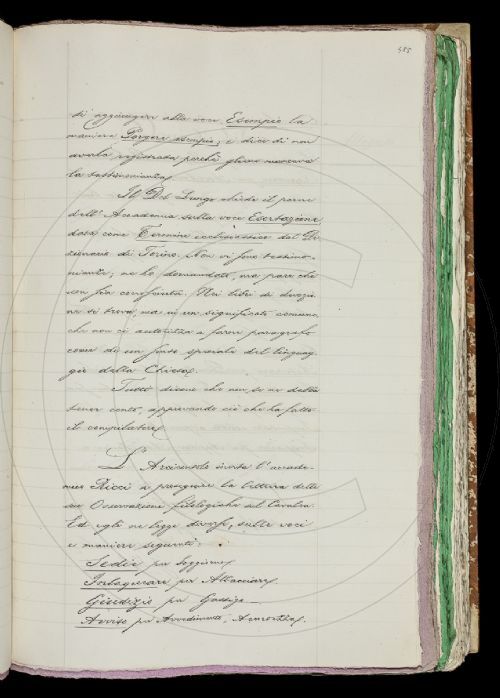 385
di aggiungere alla voce Esempio la
maniera Porgere esempio; e dice di non
averla registrata perchè gliene mancava
la testimonianza.
Il Del Lungo chiede il parere
dell'Accademia sulla voce Esertazione
data come Termine ecclesiastico dal Di
zionario di Torino. Non vi sono testimo-
nianze, ne ho domandato, ma pare che
non sia conosciuta. Nei libri di devozio
ne si trova, ma in un significato comune,
che non ci autorizza a farne paragrafo
come di un senso speciale del linguag-
gio della Chiesa.
Tutti dicono che non se ne debba
tener conto, approvando ciò che ha fatto
il compilatore.
L'Arciconsolo invita l'accade-
mico Ricci a proseguire la lettura delle
sue Osservazioni filologiche sul Cavalca.
Ed egli ne legge diverse, sulle voci
e maniere seguenti:
Sedie per Soggiorno.
per Allacciare.
Giudizio per Gastigo.
Avviso per Avvedimento, Accortezza.